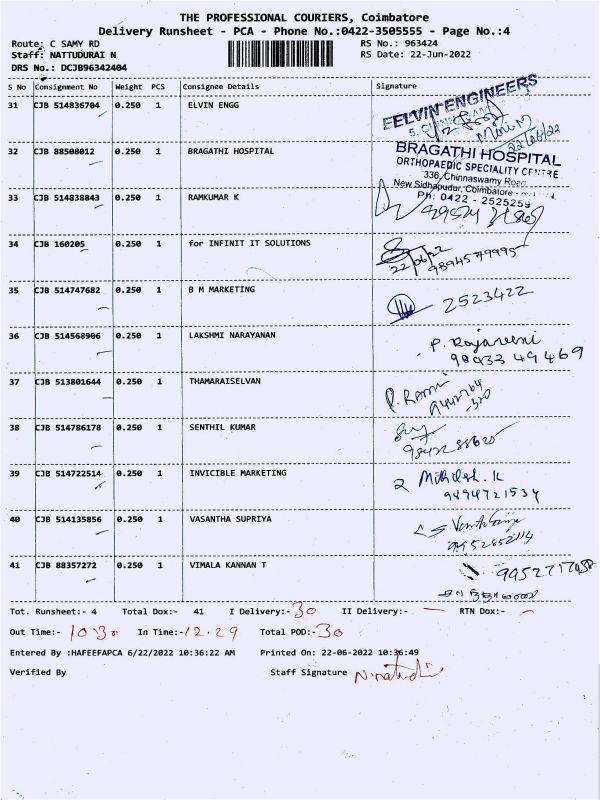 THE PROFESSIONAL COURIERS, Coimbatore
Delivery Runsheet - PCA - Phone No.:0422-3505555 - Page No.:4
Route: C SAMY RD
RS No.: 963424
Staff: NATTUDURAI N
RS Date: 22-Jun-2022
DRS No.: DCJB96342404
S No Consignment No Weight PCS Consignee Details Signature
31 CJB 514836704 0.250 1 ELVIN ENGG
EELVIN ENGINEERS
22/06/22
32 CJB 88508012 0.250 1 BRAGATHI HOSPITAL
BRAGATHI HOSPITAL
ORTHOPAEDIC SPECIALITY CENTRE
336, Chinnaswamy Road
New Sidhapudur, Coimbatore -
Ph: 0422 - 2525259
33 CJB 514838843 0.250 1 RAMKUMAR K
34 CJB 160205 0.250 1 for INFINIT IT SOLUTIONS
22/06/22 9894579995
35 CJB 514747682 0.250 1 B M MARKETING
2523422
36 CJB 514568906 0.250 1 LAKSHMI NARAYANAN
P. Rajaveni
98433 49469
37 CJB 513801644 0.250 1 THAMARAISELVAN
38 CJB 514786178 0.250 1 SENTHIL KUMAR
39 CJB 514722514 0.250 1 INVICIBLE MARKETING
Mithilesh. K
9494721534
40 CJB 514135856 0.250 1 VASANTHA SUPRIYA
9952852114
41 CJB 88357272 0.250 1 VIMALA KANNAN T
Tot. Runsheet:- 4 Total Dox:- 41 I Delivery:- 30 II Delivery:- — RTN Dox:- —
Out Time:- 10 30 In Time:- 12.29 Total POD:- 30
Entered By :HAFEEFAPCA 6/22/2022 10:36:22 AM Printed On: 22-06-2022 10:36:49
Verified By Staff Signature